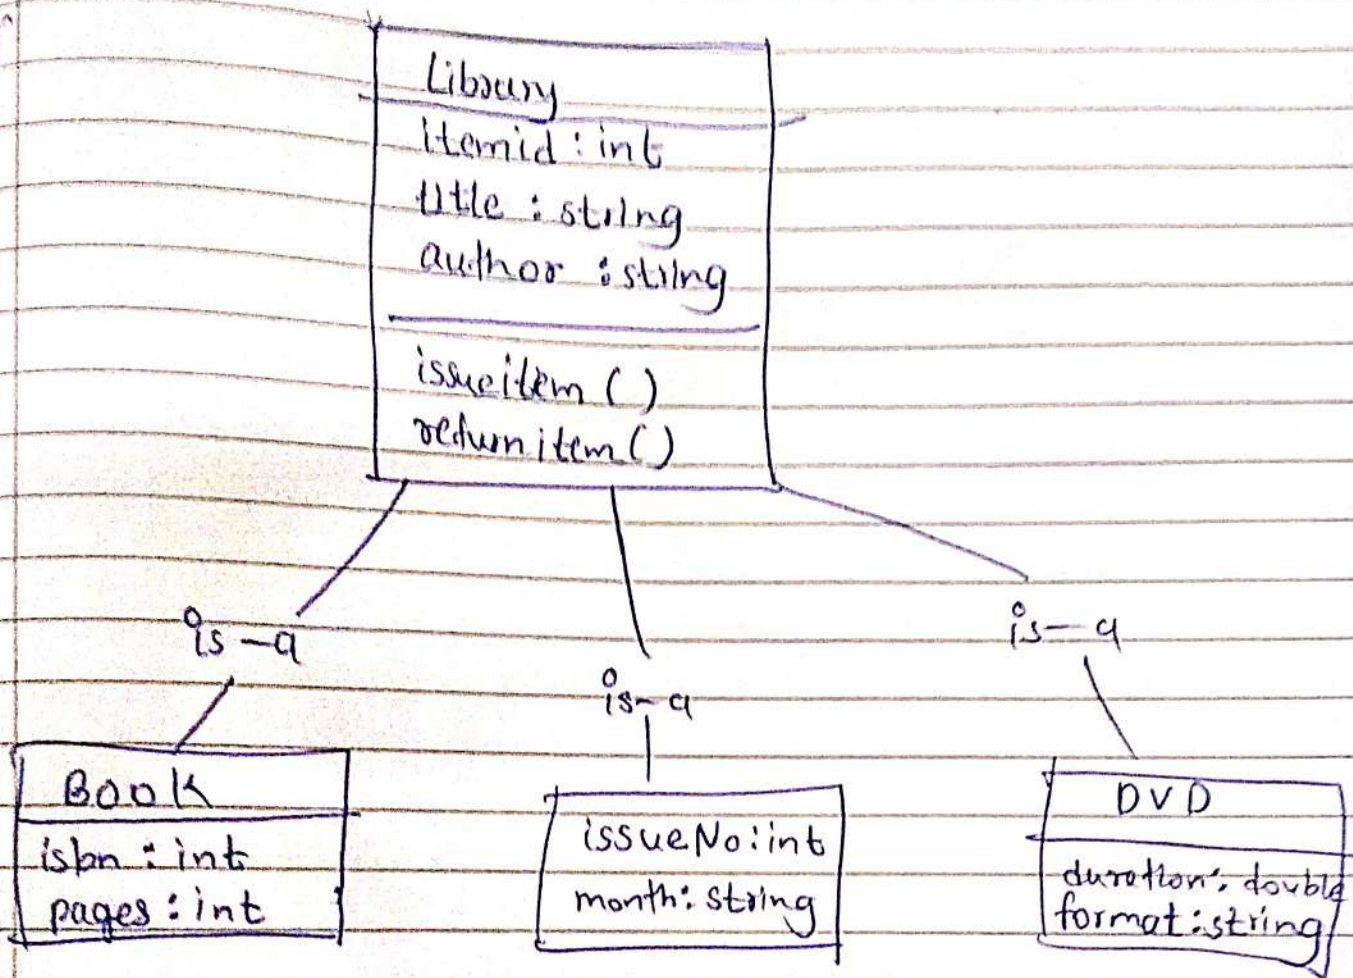 Library
itemid : int
title : string
author : string
issueitem ( )
returnitem ( )
is-a
is-a
is-a
BOOK
isbn : int
pages : int
issueNo : int
month : string
DVD
duration : double
format : string